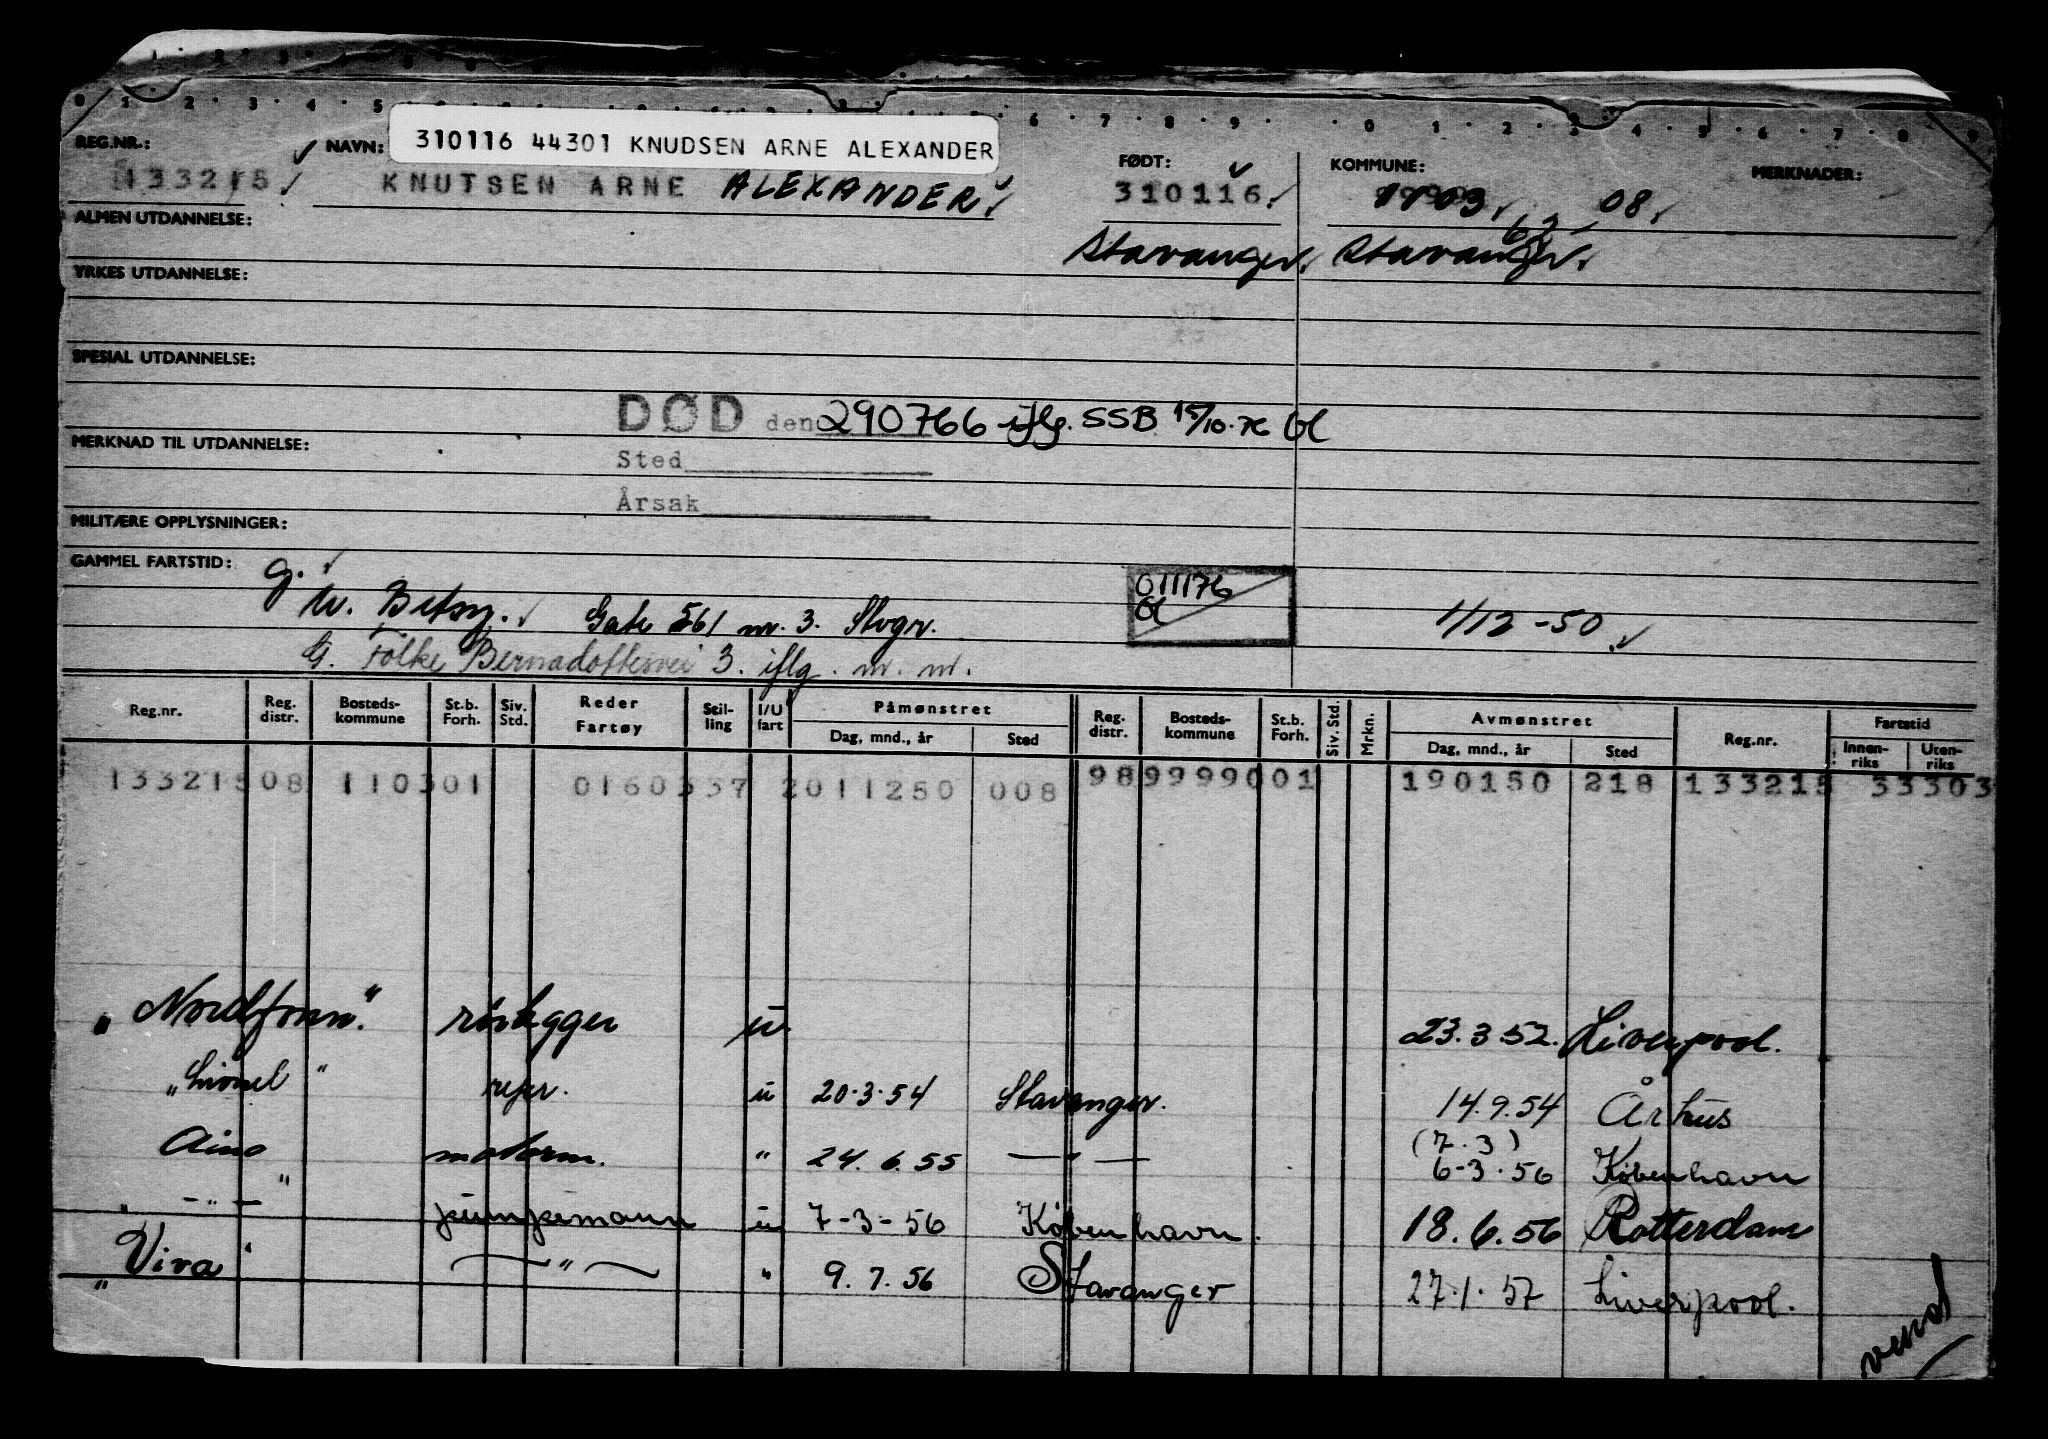 0 1 2 3 4 5 6 7 8 9 0 1 2 3 4 5 6 7 8 9
REG.NR.: NAVN: 310116 44301 KNUDSEN ARNE ALEXANDER FØDT: KOMMUNE: MERKNADER:
133215 KNUTSEN ARNE ALEXANDER. 310116. 1103. 08.
ALMEN UTDANNELSE:
Stavanger. Stavanger.
YRKES UTDANNELSE:
SPESIAL UTDANNELSE:
DØD den 290766 iflg. SSB 15/10-76
MERKNAD TIL UTDANNELSE:
Sted
Årsak
MILITÆRE OPPLYSNINGER:
GAMMEL FARTSTID: G.
w. Betsy. Gate 561 nr. 3. Stvgr. 011176 1/12-50
G. Folke Bernadottesvei 3. iflg. m. m.
Reg.nr. Reg. distr. Bosteds-kommune St.b. Forh. Siv. Std. Reder Fartøy Stil-ling I/U fart Påmønstret Reg. distr. Bosteds-kommune St.b. Forh. Siv. Std. Mrkn. Avmønstret Reg.nr. Fartstid
Dag, mnd., år Sted Dag, mnd., år Sted Innen-riks Uten-riks
133215 08 110301 0160337 2011250 008 989999001 190150 218 133215 33303
"Nordfonn" rørlegger u 23.3.52. Liverpool.
"Lionel" repr. u 20.3.54 Stavanger. 14.9.54 Århus
Aino " motorm. " 24.6.55 — " — (7.3) 6-3.56 København
" — " — pumpemann u 7-3-56 København. 18.6.56 Rotterdam
"Viva" — " — " 9.7.56 Stavanger 27.1.57 Liverpool.
vend